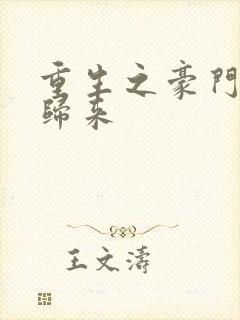 重生之豪門
歸來
王文濤